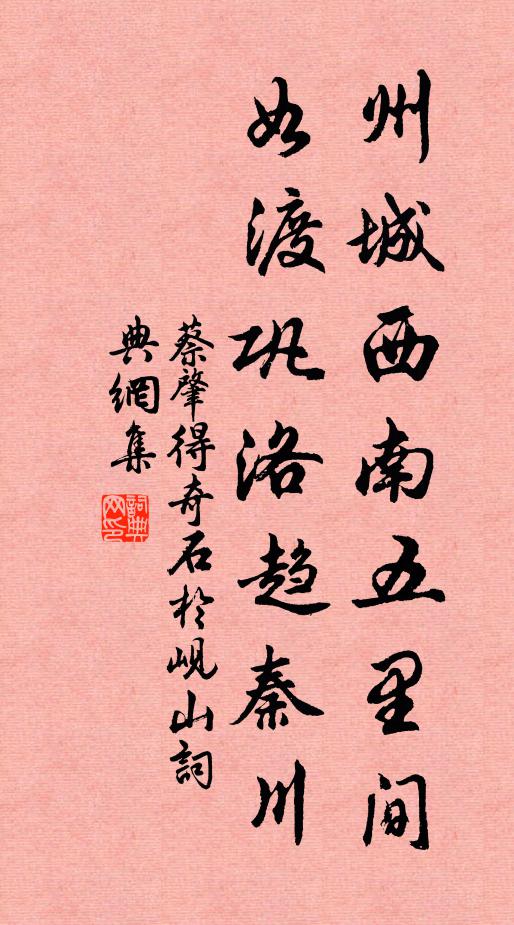 州城西南五里间
如渡巩洛趋秦川
蔡肇得奇石於岘山詞
典網集
詞典
网印